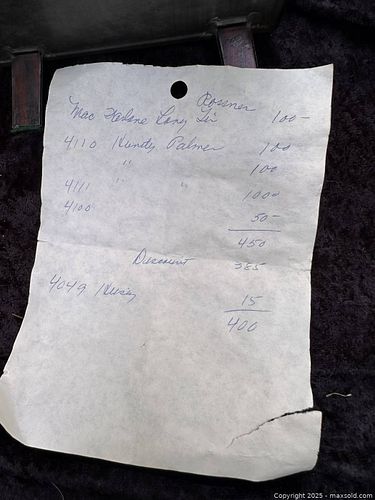 Rosmer
Mac Farlane Long Sir 100-
4110 Hundy Palmer 100
" 100
4111 " " 100-
4100 50-
450
Discount 385
4049 15
400
Copyright 2025 - maxsold.com